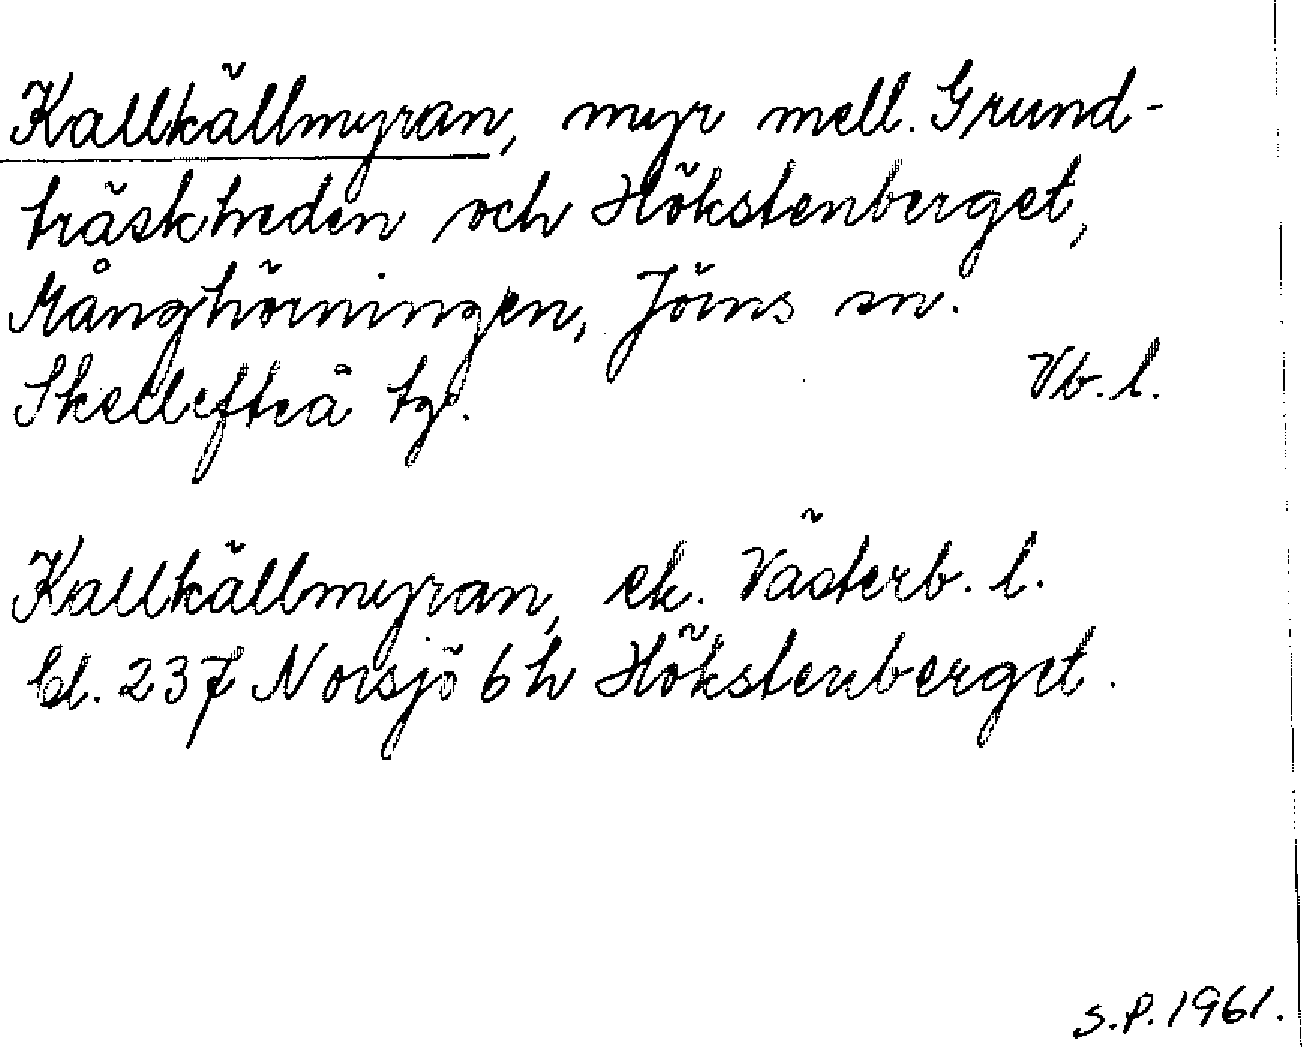 Kallkällmyran, myr mell. Grund-
träskheden och Hökstenberget,
Månghörningen, Jörns sn.
Skellefteå tg.
Vb. l.
Kallkällmyran, ek. Västerb. l.
bl. 237 Norsjö 6 h Hökstenberget.
S.P. 1961.